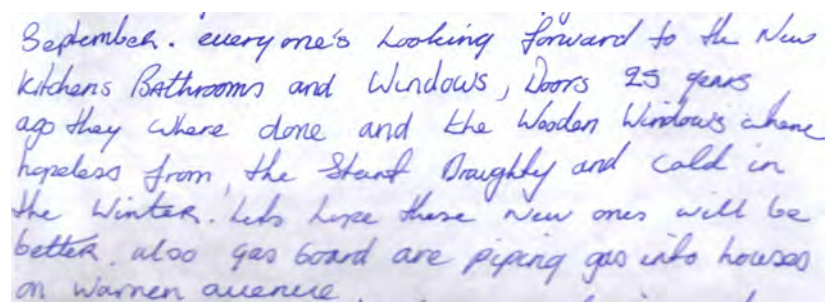 September. everyone's Looking forward to the New
kitchens Bathrooms and Windows, Doors 25 years
ago they where done and the Wooden Windows where
hopeless from, the Start Draughty and Cold in
the Winter. Lets hope these New ones will be
better. also gas board are piping gas into houses
on Warren avenue